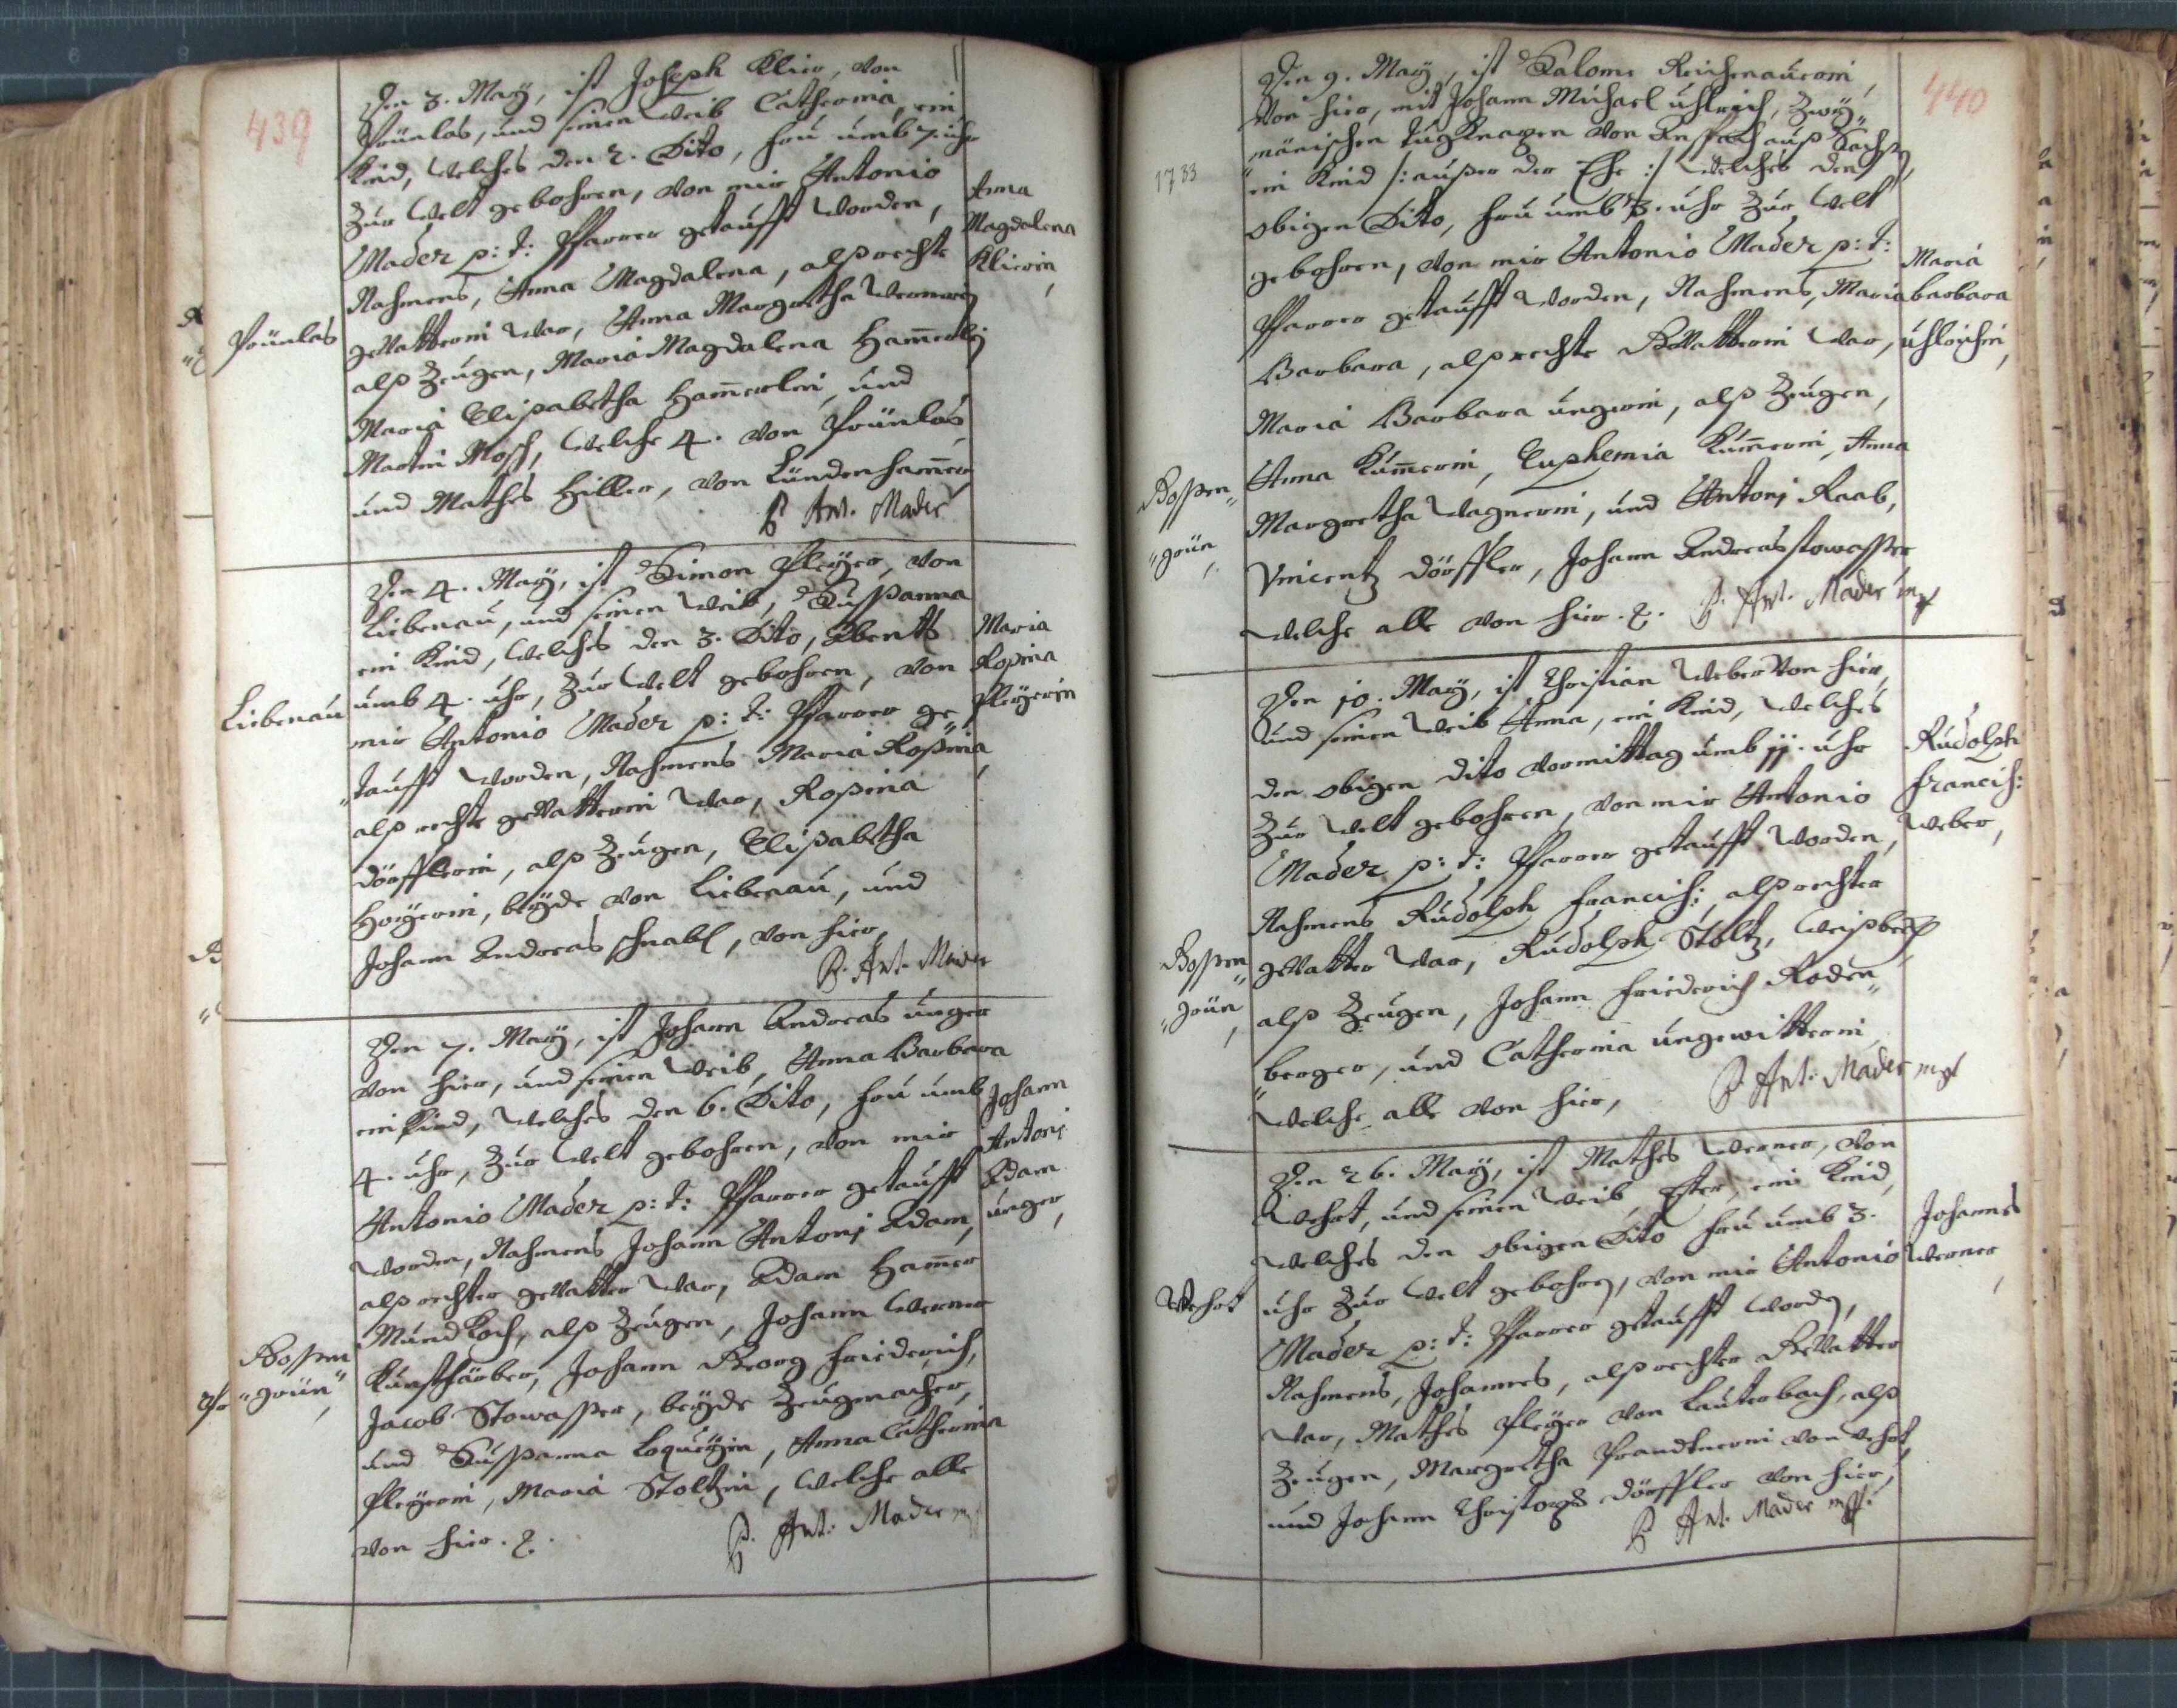 439
Den 3. Maÿ, ist Joseph Klier, von
Prünlas, und seinen Weib Catharina, ein
Kind, welches den 2. Dito, fru umb 7. uhr
zur Welt gebohren, von mir Antonio
Mader p: t: Pfarrer getaufft worden,
Nahmens, Anna Magdalena, alß rechte
gevatterin war, Anna Margretha Wernerin
alß Zeugen, Maria Magdalena Ham̅erlin
Maria Elisabetha Ham̅erlin, und
Martin Mosch, welche 4. von Prünlas,
und Mathes Hiller, von Lündenham̅er
P Ant. Mader
Prünlas
Anna
Magdalena
Klierin,
Den 4. Maÿ, ist Simon Pleÿer, von
Liebenau, und seinen Weib, Sussanna
ein Kind, welches den 3. Dito, Abents
umb 4. uhr, zur Welt gebohren, von
mir Antonio Mader p: t: Pfarrer ge„
„taufft worden, Nahmens Maria Rosina,
alß rechte gevatterin war, Rosina
Dörfflerin, alß Zeugen, Elisabetha
Hoÿerin, beÿde von Liebenau, und
Johann Andreas Schnabl, von hier,
P. Ant. Mader
Liebenau
Maria
Rosina
Pleÿerin
Den 7. Maÿ, ist Johann Andreas Unger
von hier, und seinen Weib, Anna Barbara
ein Kind, welches den 6. Dito, fru umb
4. uhr, zur Welt gebohren, von mir
Antonio Mader p: t: Pfarrer getaufft
worden, Nahmens Johann Antoni Adam,
alß rechter gevatter war, Adam Ham̅er
Mundkoch, alß Zeugen, Johann Werner
Kunstfärber, Johann Georg Friederich,
Jacob Stowasser, beÿde Zeugmacher,
und Sussanna Loqueÿin, Anna Catharina
Pleÿerin, Maria Stoltzin, welche alle
von hier.
P. Ant. Mader
Bossen
„grün„
Johann
Antoni
Adam
Unger,
440
1783
Den 9. Maÿ, ist Salome Reichenauerin,
von hier, mit Johann Michael Uhlrich,
ein Kind /: außer der Ehe :/ welches den
obigen Dito, fru umb 3. uhr zur Welt
gebohren, von mir Antonio Mader p: t:
Pfarrer getaufft worden, Nahmens, Maria
Barbara, alß rechte Gevatterin war,
Maria Barbara Ungerin, alß Zeugen,
Anna Kum̅erin, Euphemia Kum̅erin, Anna
Margretha Wagnerin, und Antoni Raab,
Vincentz Dörffler, Johann Andreas Stowasser
welche alle von hier. P. Ant. Mader
Bossen„
„grün,
Maria
barbara
Uhlrichin,
Den 10. Maÿ, ist Christian Weber von hier,
und seinen Weib Anna, ein Kind, welches
den obigen dito vormittag umb 11. uhr
zur Welt gebohren, von mir Antonio
Mader p: t: Pfarrer getaufft worden,
Nahmens Rudolph Francisc: alß rechter
gevatter war, Rudolph Stoltz, Weißbeck
alß Zeugen, Johann Friederich Roden„
„berger, und Catharina Ungewitterin
welche alle von hier,
P. Ant. Mader
Bossen„
„grün,
Rudolph
Francisc:
Weber,
Den 26. Maÿ, ist Mathes Werner, von
Wehrt, und seinen Weib Ester, ein Kind,
welches den obigen Dito fru umb 3.
uhr zur Welt gebohren, von mir Antonio
Mader p: t: Pfarrer getaufft worden,
Nahmens, Johannes, alß rechter Gevatter
war, Mathes Pleÿer von Lauterbach, alß
Zeugen, Margretha Prandtnerin von Wehrt,
und Johann Christoph Dörffler von hier,
P Ant. Mader
Wehrt
Johannes
Werner,